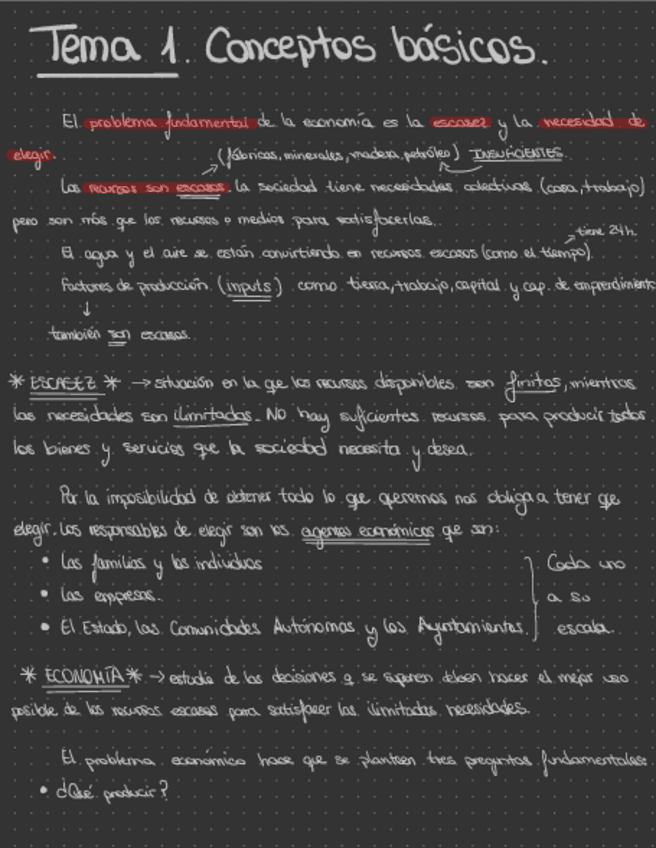 Tema 1. Conceptos básicos.
El problema fundamental de la economía es la escasez y la necesidad de
elegir.
(fábricas, minerales, madera, petróleo) INSUFICIENTES
Los recursos son escasos, la sociedad tiene necesidades colectivas (casa, trabajo)
pero son más que los recursos o medios para satisfacerlas.
tiene 24h.
El agua y el aire se están convirtiendo en recursos escasos (como el tiempo).
Factores de producción (inputs) como tierra, trabajo, capital y cap. de emprendimiento
también son escasos.
* ESCASEZ * → situación en la que los recursos disponibles son finitos, mientras
las necesidades son ilimitadas. No hay suficientes recursos para producir todos
los bienes y servicios que la sociedad necesita y desea.
Por la imposibilidad de obtener todo lo que queremos nos obliga a tener que
elegir. Los responsables de elegir son los agentes económicos que son:
• Las familias y los individuos
• Las empresas.
• El Estado, las Comunidades Autónomas y los Ayuntamientos.
Cada uno
a su
escala.
* ECONOMÍA * → estudia de las decisiones q se supone deben hacer el mejor uso
posible de los recursos escasos para satisfacer las ilimitadas necesidades.
El problema económico hace que se planteen tres preguntas fundamentales:
• ¿Qué producir?